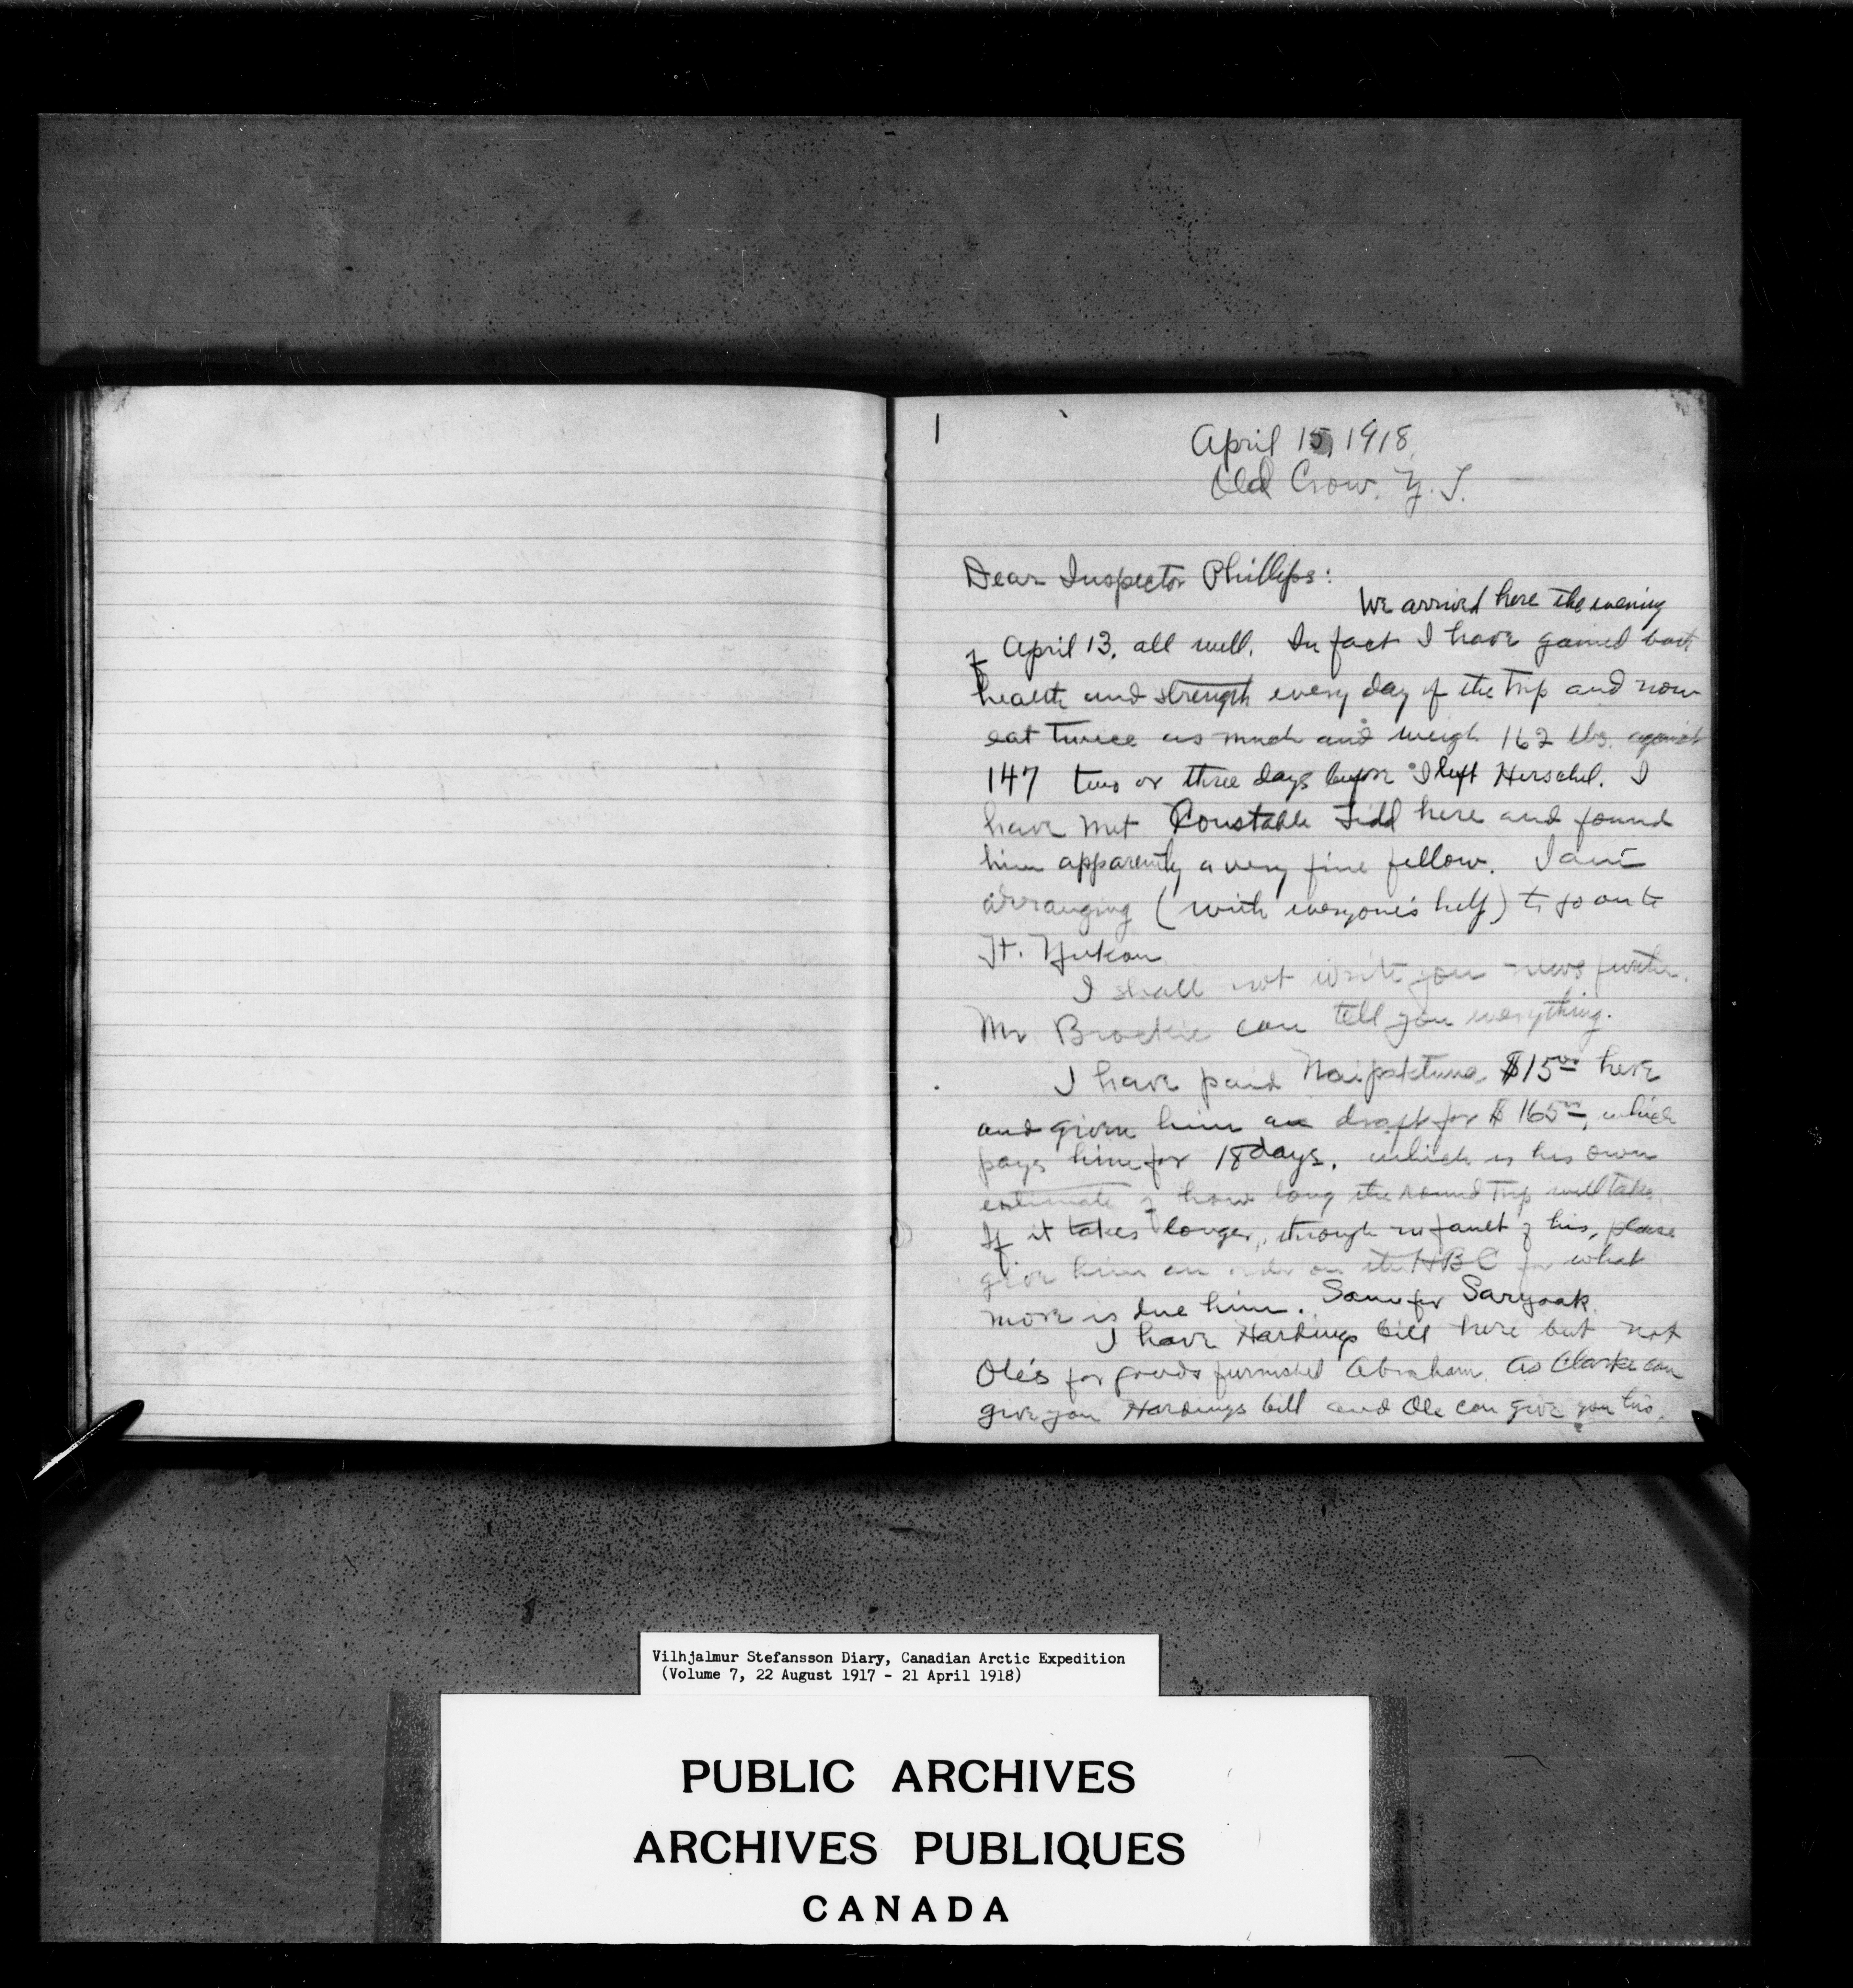 1
April 15, 1918
Old Crow, Y. T.
Dear Inspector Phillips:
We arrived here the evening
of April 13, all well. In fact I have gained both
health and strength every day of the trip and now
eat twice as much and weigh 162 lbs. against
147 two or three days before I left Herschel. I
have met Constable Tidd here and found
him apparently a very fine fellow. I am
arranging (with everyone's help) to go on to
Ft. Yukon
I shall not write you news further.
Mr Brockie can tell you everything.
I have paid $15 00 here
and given him a draft for $165 00, which
pays him for 18 days, which is his own
estimate of how long the round trip will take.
If it takes longer, through no fault of his, please
give him an order on the HBC for what
more is due him. Same for Saryoak
I have Hardings bill here but not
Ole's for goods furnished Abraham. As Clarke can
give you Hardings bill and Ole can give you his,
Vilhjalmur Stefansson Diary, Canadian Arctic Expedition
(Volume 7, 22 August 1917 - 21 April 1918)
PUBLIC ARCHIVES
ARCHIVES PUBLIQUES
CANADA